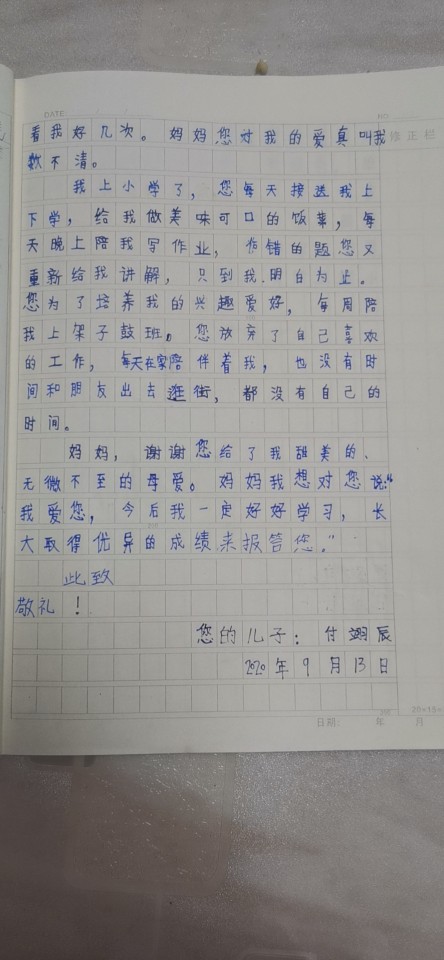 DATE:
NO
看我好几次。妈妈您对我的爱真叫我
修正栏
数不清。
我上小学了，您每天接送我上
下学，给我做美味可口的饭菜，每
天晚上陪我写作业，作错的题您又
重新给我讲解，只到我明白为止。
您为了培养我的兴趣爱好，每周陪
我上架子鼓班。您放弃了自己喜欢
的工作，每天在家陪伴着我，也没有时
间和朋友出去逛街，都没有自己的
时间。
妈妈，谢谢您给了我甜美的、
无微不至的母爱。妈妈我想对您说“
我爱您，今后我一定好好学习，长
大取得优异的成绩来报答您。”
此致
敬礼！
您的儿子：付翊辰
2020年9月13日
日期： 年 月